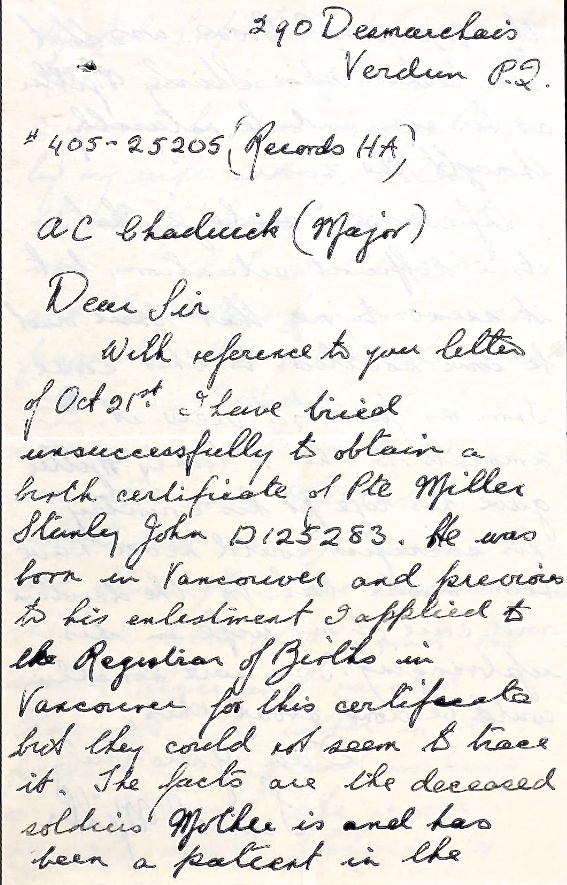 290 Desmarchais
Verdun P.Q.
# 405-25205 (Records HA)
A C Chadwick (Major)
Dear Sir
With reference to your letter
of Oct 21st I have tried
unsuccessfully to obtain a
birth certificate of Pte Miller
Stanley John D125283. He was
born in Vancouver and previous
to his enlistment I applied to
the Registrar of Births in
Vancouver for this certificate
but they could not seem to trace
it. The facts are the deceased
soldiers Mother is and has
been a patient in the